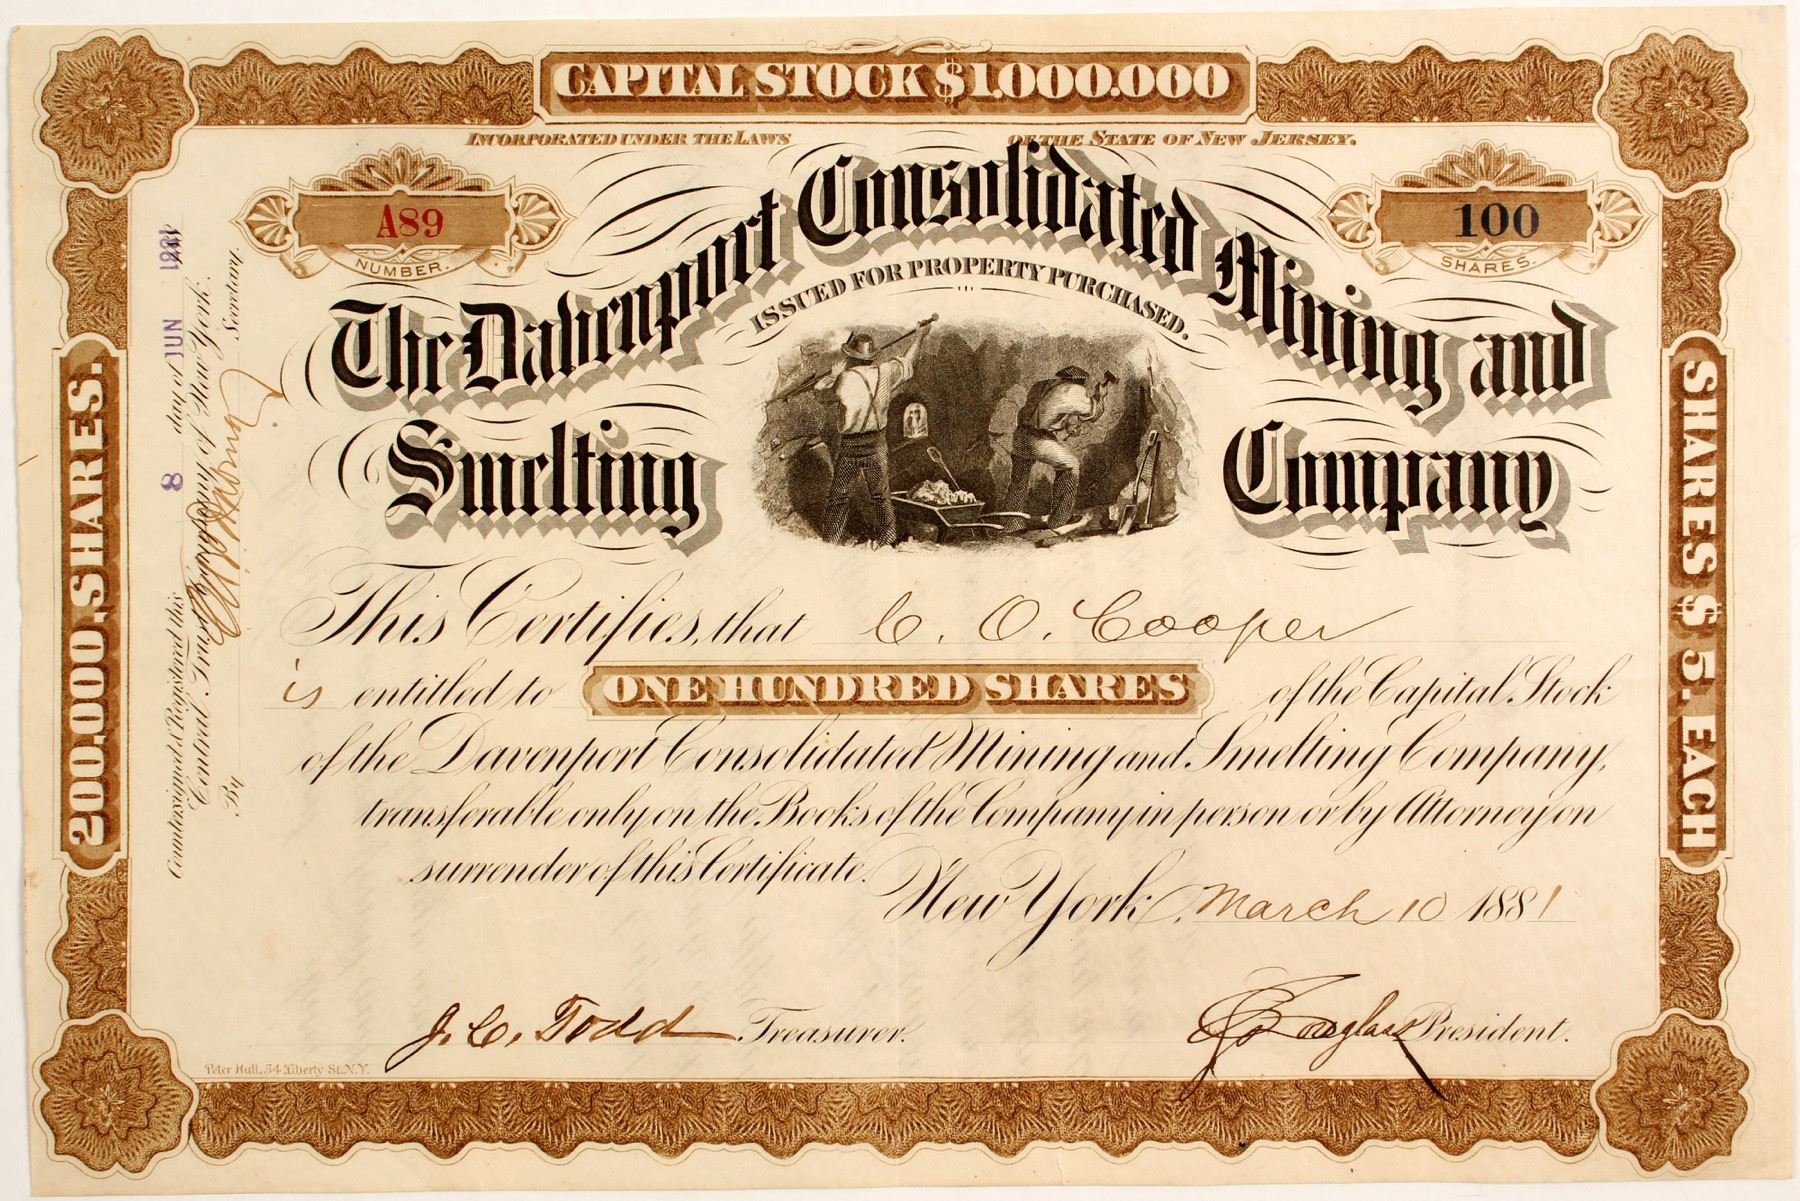 CAPITAL STOCK $1.000.000
INCORPORATED UNDER THE LAWS OF THE STATE OF NEW JERSEY.
A89
NUMBER.
100
SHARES.
The Davenport Consolidated Mining and
Smelting Company
ISSUED FOR PROPERTY PURCHASED.
This Certifies, that C. O. Cooper
is entitled to ONE HUNDRED SHARES of the Capital Stock
of the Davenport Consolidated Mining and Smelting Company,
transferable only on the Books of the Company in person or by Attorney on
surrender of this Certificate.
New York, March 10 1881
J. C. Todd Treasurer.
Douglass President.
Peter Hall, 34 Liberty St. N.Y.
200.000. SHARES.
SHARES $5. EACH
Countersigned & Registered this 8 day of JUN 1881
Central Trust Company of New York.
By Secretary.